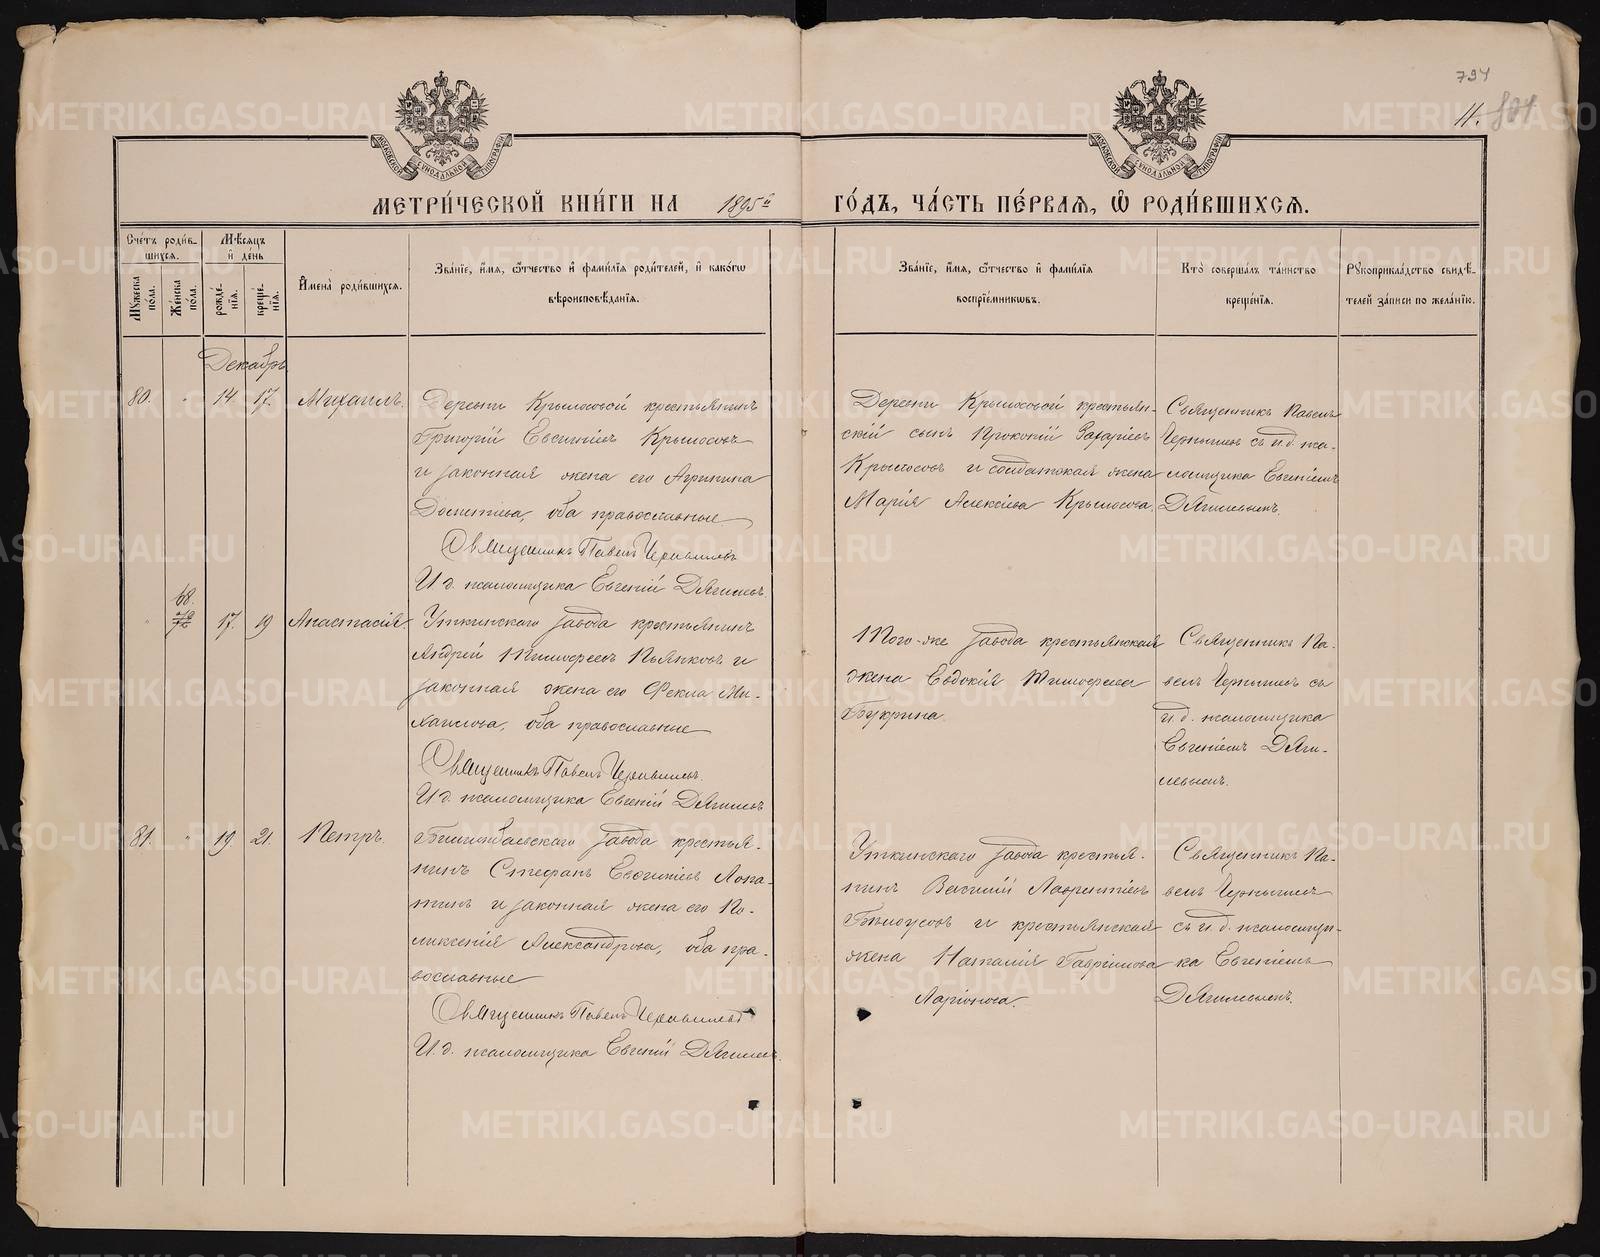 794
11. 801
МЕТРИ́ЧЕСКОЙ КНИ́ГИ НА 1895й ГО́ДЪ, ЧА́СТЬ ПЕ́РВАѦ, Ѡ҆ РОДИ́ВШИХСѦ.
Сче́тъ роди́в-
шихсѧ.
Мꙋжеска по́ла.
Же́нска по́ла.
Мѣ́сѧцъ
и҆ де́нь
рожде́-нїѧ.
креще́-нїѧ.
И҆мена̀ роди́вшихсѧ.
Зва́нїе, и҆́мѧ, ѻ҆́тчество и҆ фами́лїѧ роди́телей, и҆ како́гѡ
вѣроисповѣ́данїѧ.
Зва́нїе, и҆́мѧ, ѻ҆́тчество и҆ фами́лїѧ
воспрїе́мникѡвъ.
Кто̀ соверша́лъ та́инство
креще́нїѧ.
Рꙋкоприкла́дство свидѣ́-
телей за́писи по жела́нїю.
Декабрь
80. " 14. 17. Михаилъ.
Деревни Крылосовой крестьянинъ
Григорій Евсиніевъ Крылосовъ
и законная жена его Агрипина
оба православные
Священникъ Павелъ Чернышевъ
И. д. псаломщика Евгеній Дягилевъ.
Деревни Крылосовой крестьян-
скій сынъ Прокопій Захаріевъ
Крылосовъ и солдатская жена
Марія Алексіева Крылосова.
Священникъ Павелъ
Чернышевъ съ и. д. пса-
ломщика Евгеніемъ
Дягилевымъ.
" 68. 17. 19 Анастасія.
Уткинскаго завода крестьянинъ
Андрей Тимофеевъ Пьянковъ и
законная жена его Фекла Ми-
хаилова, оба православные
Священникъ Павелъ Чернышевъ.
И. д. псаломщика Евгеній Дягилевъ
Того-же завода крестьянская
жена Евдокія Тимофеева
Букрина.
Священникъ Па-
велъ Чернышевъ съ
и. д. псаломщика
Евгеніемъ Дяги-
левымъ.
81. " 19. 21. Петръ.
Билимбаевскаго завода крестья-
нинъ Стефанъ Евгеніевъ Лопа-
тинъ и законная жена его По-
ликсенія Александрова, оба пра-
вославные
Священникъ Павелъ Чернышевъ
И. д. псаломщика Евгеній Дягилевъ.
Уткинскаго завода крестья-
нинъ Василій Лаврентіевъ
Бѣлоусовъ и крестьянская
жена Наталія Гавріилова
Ларіонова.
Священникъ Па-
велъ Чернышевъ
съ и. д. псаломщи-
ка Евгеніемъ
Дягилевымъ.
METRIKI.GASO-URAL.RU